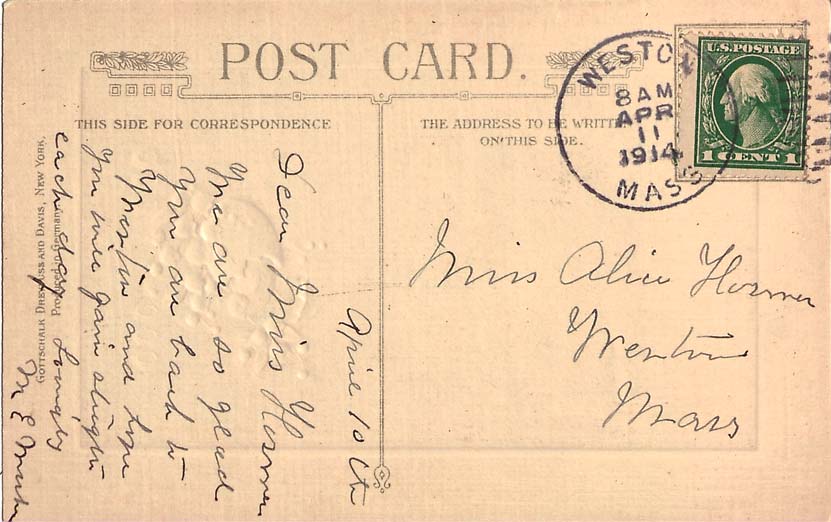 POST CARD.
THIS SIDE FOR CORRESPONDENCE
THE ADDRESS TO BE WRITTEN
ON THIS SIDE.
WESTON
8 AM
APR
11
1914
MASS
U.S. POSTAGE
1 CENT 1
Miss Alice Hosmer
Weston
Mass
April 10th
Dear Miss Hosmer
We are so glad
you are back to
Weston and hope
you will gain strength
each day Lovingly
M E
GOTTSCHALK DREYFUSS AND DAVIS, NEW YORK.
Printed in Germany